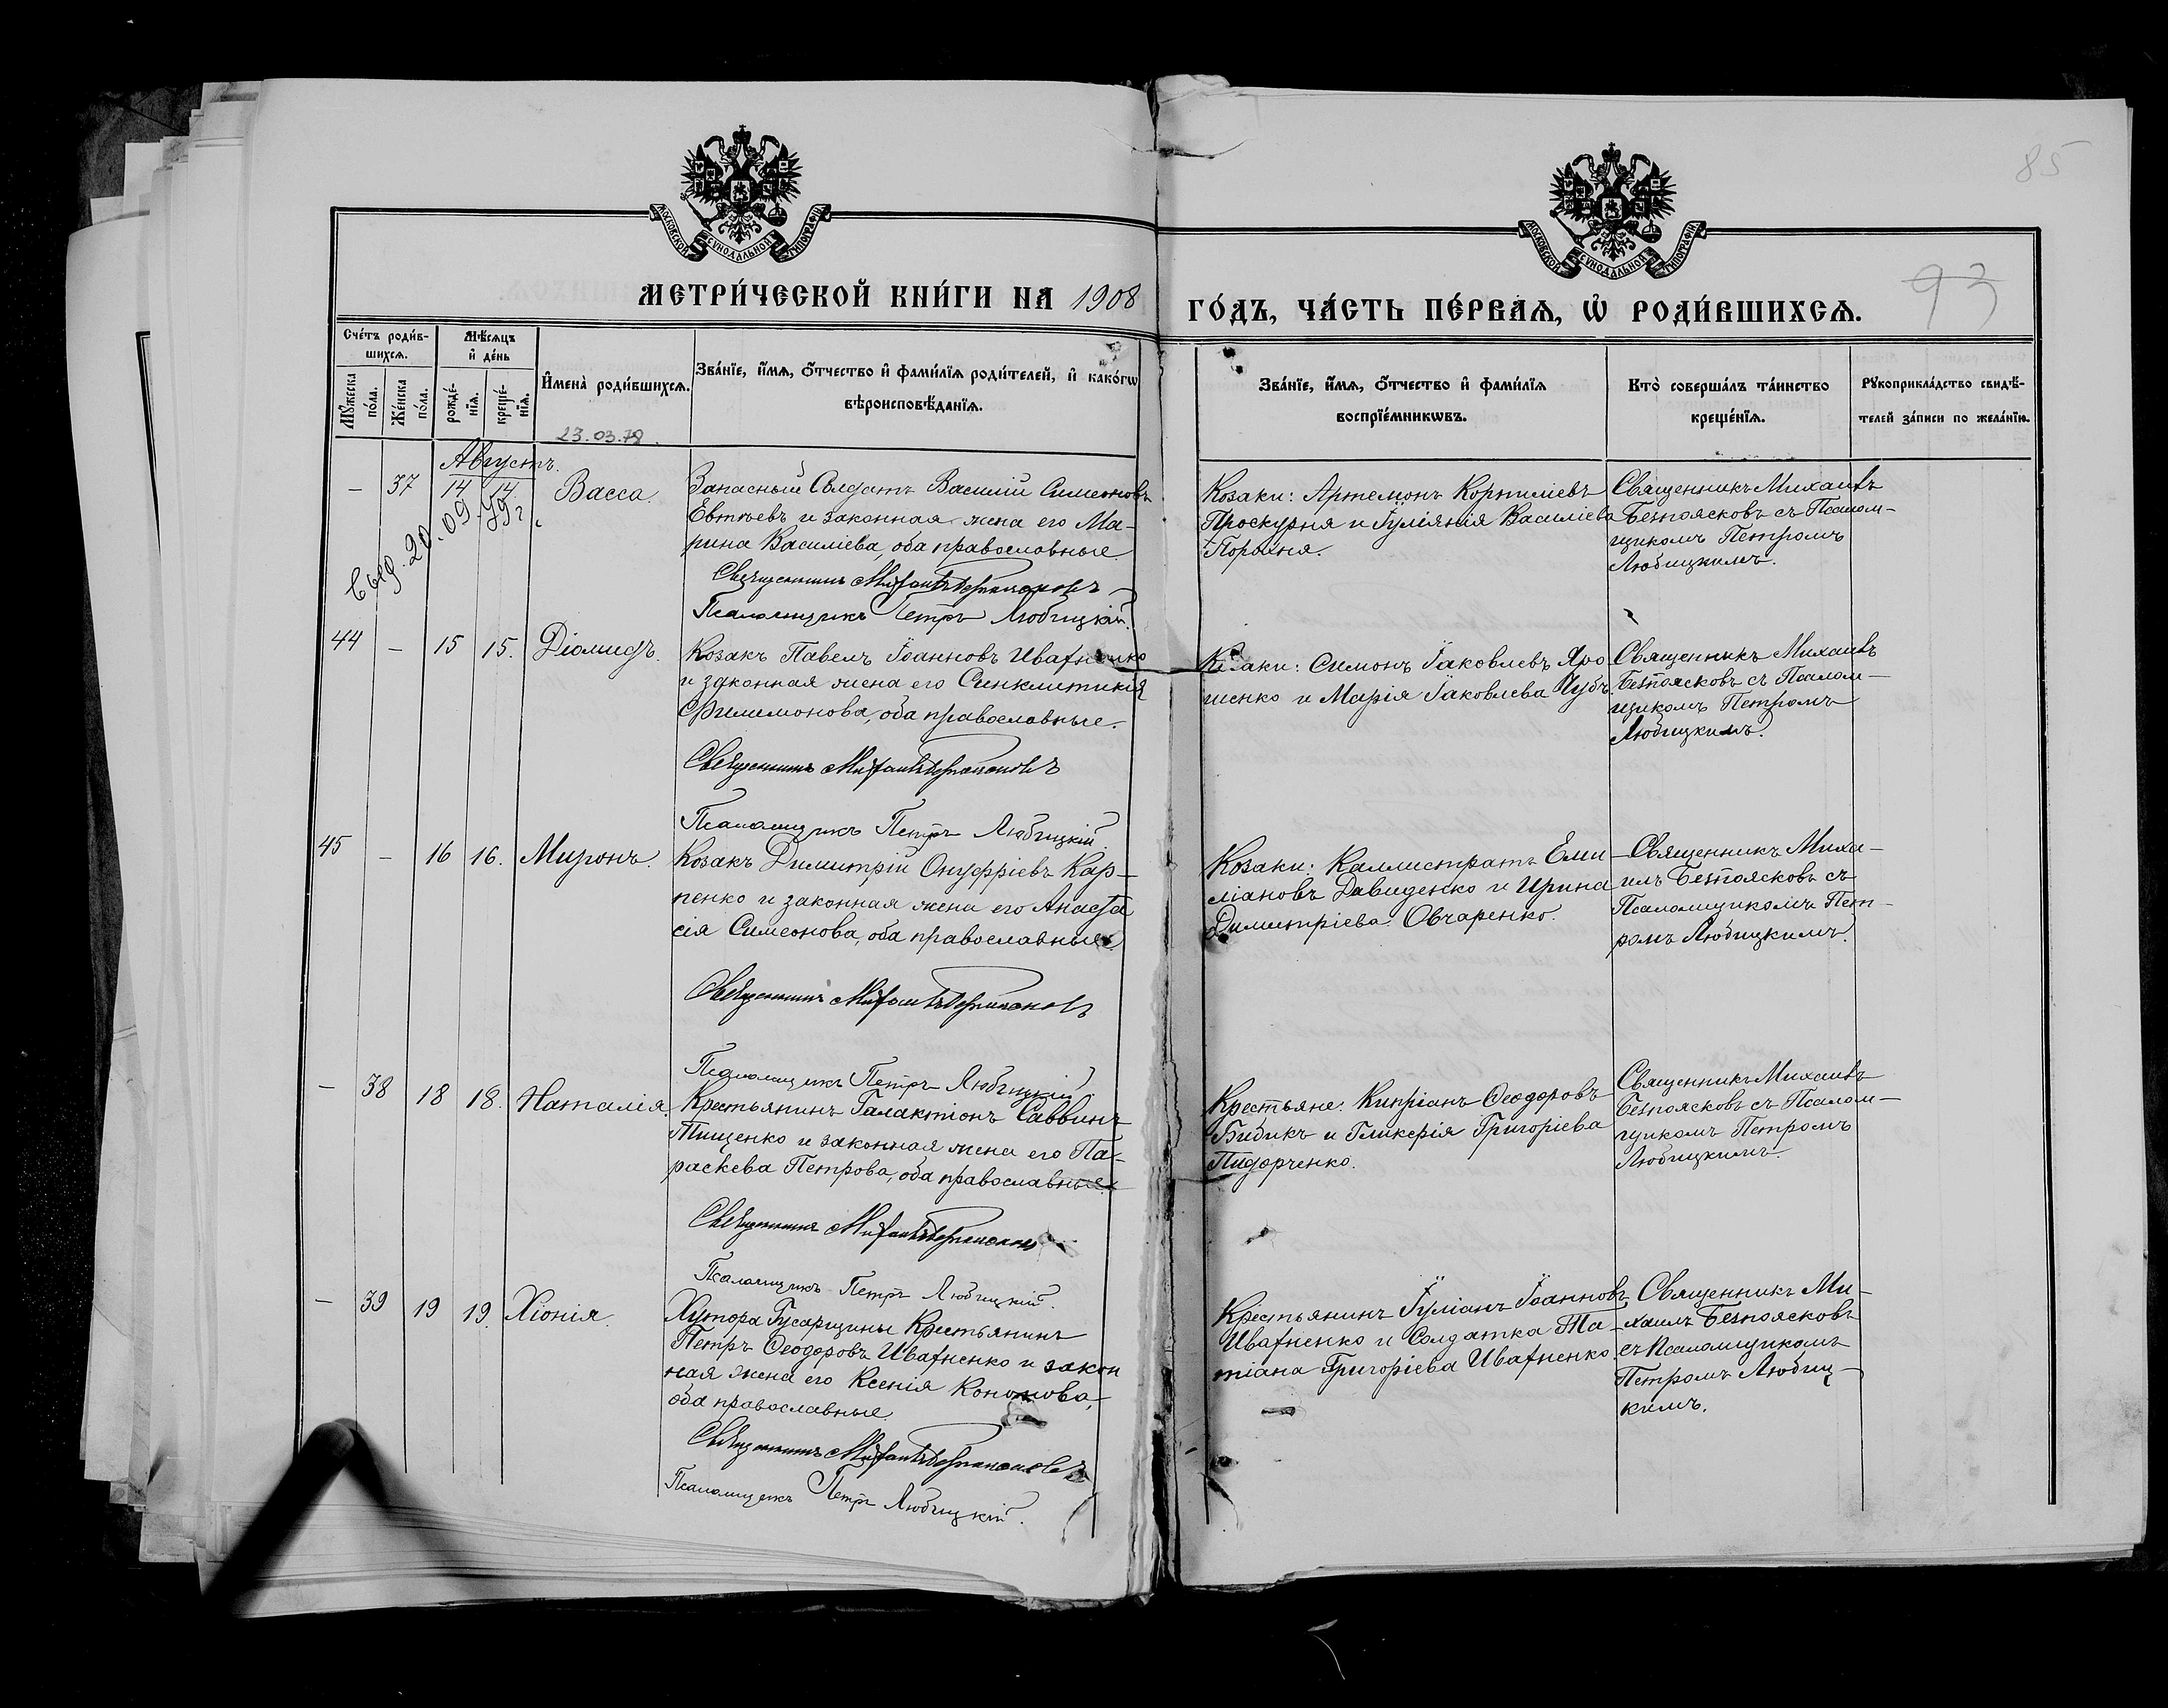 85
МОСКОВСКОЙ СѴНОДАЛЬНОЙ ТИПОГРАФІИ
МОСКОВСКОЙ СѴНОДАЛЬНОЙ ТИПОГРАФІИ
МЕТРИ́ЧЕСКОЙ КНИ́ГИ НА 1908 ГО́ДЪ, ЧА́СТЬ ПЕ́РВАѦ, Ѡ҆ РОДИ́ВШИХСѦ.
93
Сче́тъ роди́в-
шихсѧ.
Мꙋ́жеска
по́ла.
Же́нска
по́ла.
Мѣ́сѧцъ
и҆ де́нь
рожде́-
нїѧ.
креще́-
нїѧ.
И҆мена̀ роди́вшихсѧ.
23.03.79.
Зва́нїе, и҆́мѧ, ѻ҆́тчество и҆ фами́лїѧ роди́телей, и҆ како́гѡ
вѣроисповѣ́данїѧ.
Зва́нїе, и҆́мѧ, ѻ҆́тчество и҆ фами́лїѧ
воспрїе́мникѡвъ.
Кто̀ соверша́лъ та́инство
креще́нїѧ.
Рꙋкоприкла́дство свидѣ́-
телей за́писи по жела́нїю.
Августъ.
– 37 14 14 Васса.
Запасный Солдатъ Василій Симеоновъ
Евтѣевъ и законная жена его Ма-
рина Василіева, оба православные
Священникъ Михаилъ Безпоясковъ
Псаломщикъ Петръ Любицкій.
Козаки: Артемонъ Корниліевъ
Проскурня и Іуліянія Василіева
Порохня.
Священникъ Михаилъ
Безпоясковъ съ Псалом-
щикомъ Петромъ
Любицкимъ.
44 – 15 15. Діомидъ.
Козакъ Павелъ Іоанновъ Ивахненко
и законная жена его Синклитикія
Филимонова, оба православные.
Священникъ Михаилъ Безпоясковъ
Псаломщикъ Петръ Любицкій.
Козаки: Симонъ Іаковлевъ Яро
шенко и Марія Іаковлева Чубъ.
Священникъ Михаилъ
Безпоясковъ съ Псалом-
щикомъ Петромъ
Любицкимъ.
45 – 16 16. Миронъ.
Козакъ Димитрій Онуфріевъ Кар-
пенко и законная жена его Анаста
сія Симеонова, оба православные
Священникъ Михаилъ Безпоясковъ
Псаломщикъ Петръ Любицкій
Козаки: Каллистратъ Еми-
ліановъ Давиденко и Ирина
Димитріева Овчаренко.
Священникъ Миха-
илъ Безпоясковъ съ
Псаломщикомъ Пет-
ромъ Любицкимъ.
– 38 18 18. Наталія.
Крестьянинъ Галактіонъ Саввинъ
Тищенко и законная жена его Па-
раскева Петрова, оба православные.
Священникъ Михаилъ Безпоясковъ
Псаломщикъ Петръ Любицкій.
Крестьяне: Кипріанъ Ѳеодоровъ
Бибикъ и Гликерія Григоріева
Пидорченко.
Священникъ Михаилъ
Безпоясковъ съ Псалом-
щикомъ Петромъ
Любицкимъ.
– 39 19 19. Хіонія.
Хутора Гусарщины Крестьянинъ
Петръ Ѳеодоровъ Ивахненко и закон
ная жена его Ксенія Кононова,
оба православные.
Священникъ Михаилъ Безпоясковъ
Псаломщикъ Петръ Любицкій.
Крестьянинъ Іуліанъ Іоанновъ
Ивахненко и Солдатка Та-
тіана Григоріева Ивахненко.
Священникъ Ми-
хаилъ Безпоясковъ
съ Псаломщикомъ
Петромъ Любиц-
кимъ.